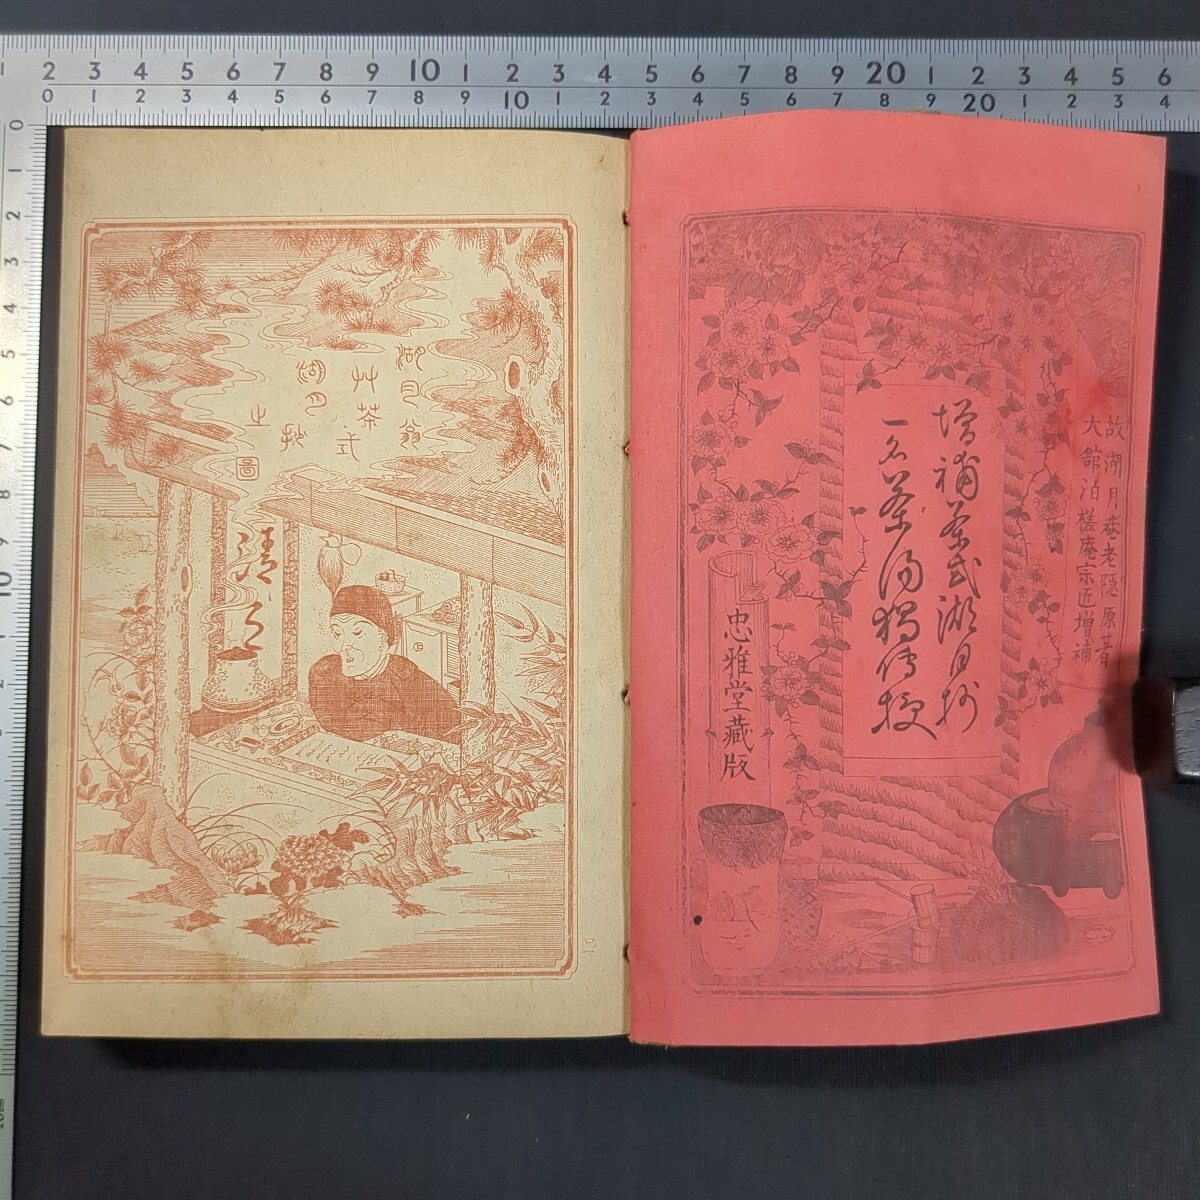 故湖月菴老隠原著
大館泊槎庵宗匠増補
增補茶式湖月抄
一名茶湯獨傳授
忠雅堂藏版
湖月翁
艸茶式
湖月抄
之圖
2 3 4 5 6 7 8 9 10 1 2 3 4 5 6 7 8 9 20 1 2 3 4 5 6
0 1 2 3 4 5 6 7 8 9 10 1 2 3 4 5 6 7 8 9 20 1 2 3 4
0 1 2 3 4 5 6 7 8 9 10